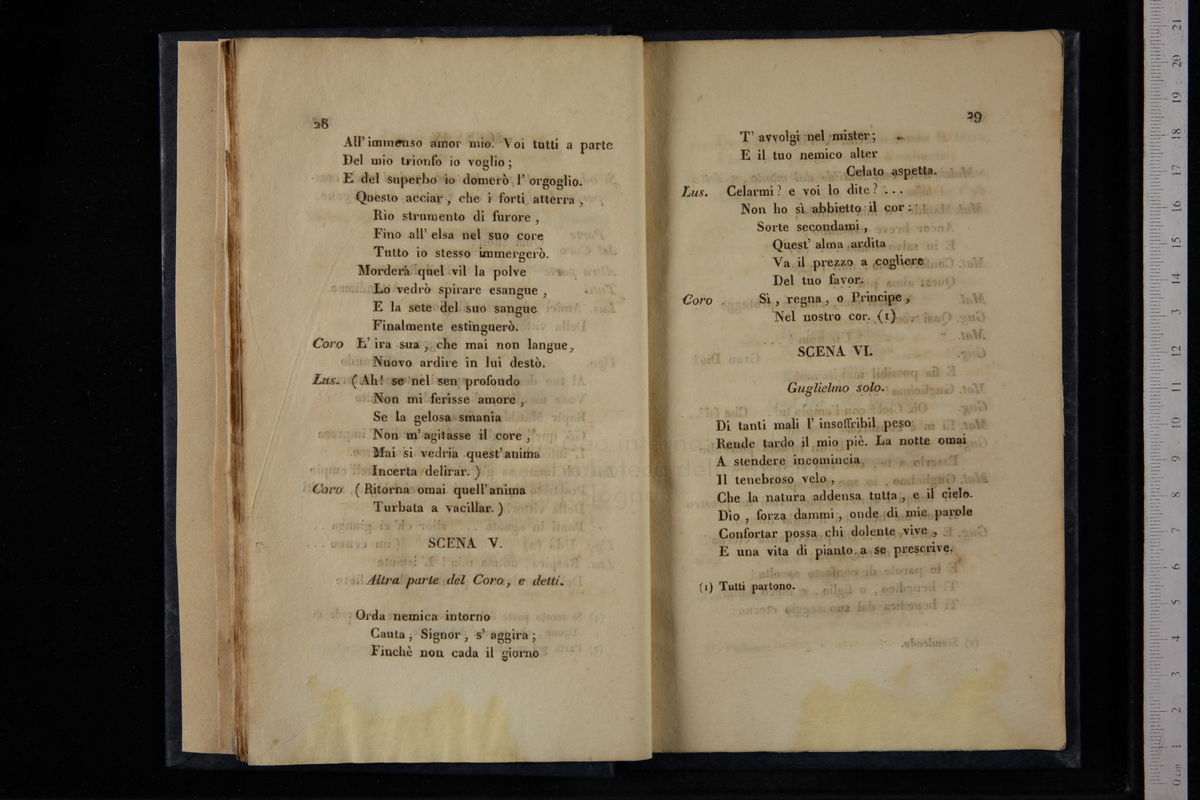 28
All' immenso amor mio. Voi tutti a parte
Del mio trionfo io voglio ;
E del superbo io domerò l' orgoglio.
Questo acciar , che i forti atterra ,
Rio strumento di furore ,
Fino all' elsa nel suo core
Tutto io stesso immergerò.
Morderà quel vil la polve
Lo vedrò spirare esangue ,
E la sete del suo sangue
Finalmente estinguerò.
Coro L' ira sua , che mai non langue,
Nuovo ardire in lui destò.
Lus. ( Ah! se nel sen profondo
Non mi ferisse amore ,
Se la gelosa smania
Non m' agitasse il core ,
Mai si vedria quest' anima
Incerta delirar. )
Coro ( Ritorna omai quell' anima
Turbata a vacillar. )
SCENA V.
Altra parte del Coro, e detti.
Orda nemica intorno
Cauta , Signor , s' aggira ;
Finchè non cada il giorno
29
T' avvolgi nel mister ;
E il tuo nemico alter
Celato aspetta.
Lus. Celarmi ? e voi lo dite ? . . .
Non ho sì abbietto il cor :
Sorte secondami ,
Quest' alma ardita
Va il prezzo a cogliere
Del tuo favor.
Coro Sì , regna , o Principe ,
Nel nostro cor. (1)
SCENA VI.
Guglielmo solo.
Di tanti mali l' insoffribil peso
Rende tardo il mio piè. La notte omai
A stendere incomincia
Il tenebroso velo ,
Che la natura addensa tutta , e il cielo.
Dio , forza dammi , onde di mie parole
Confortar possa chi dolente vive ,
E una vita di pianto a se prescrive.
(1) Tutti partono.